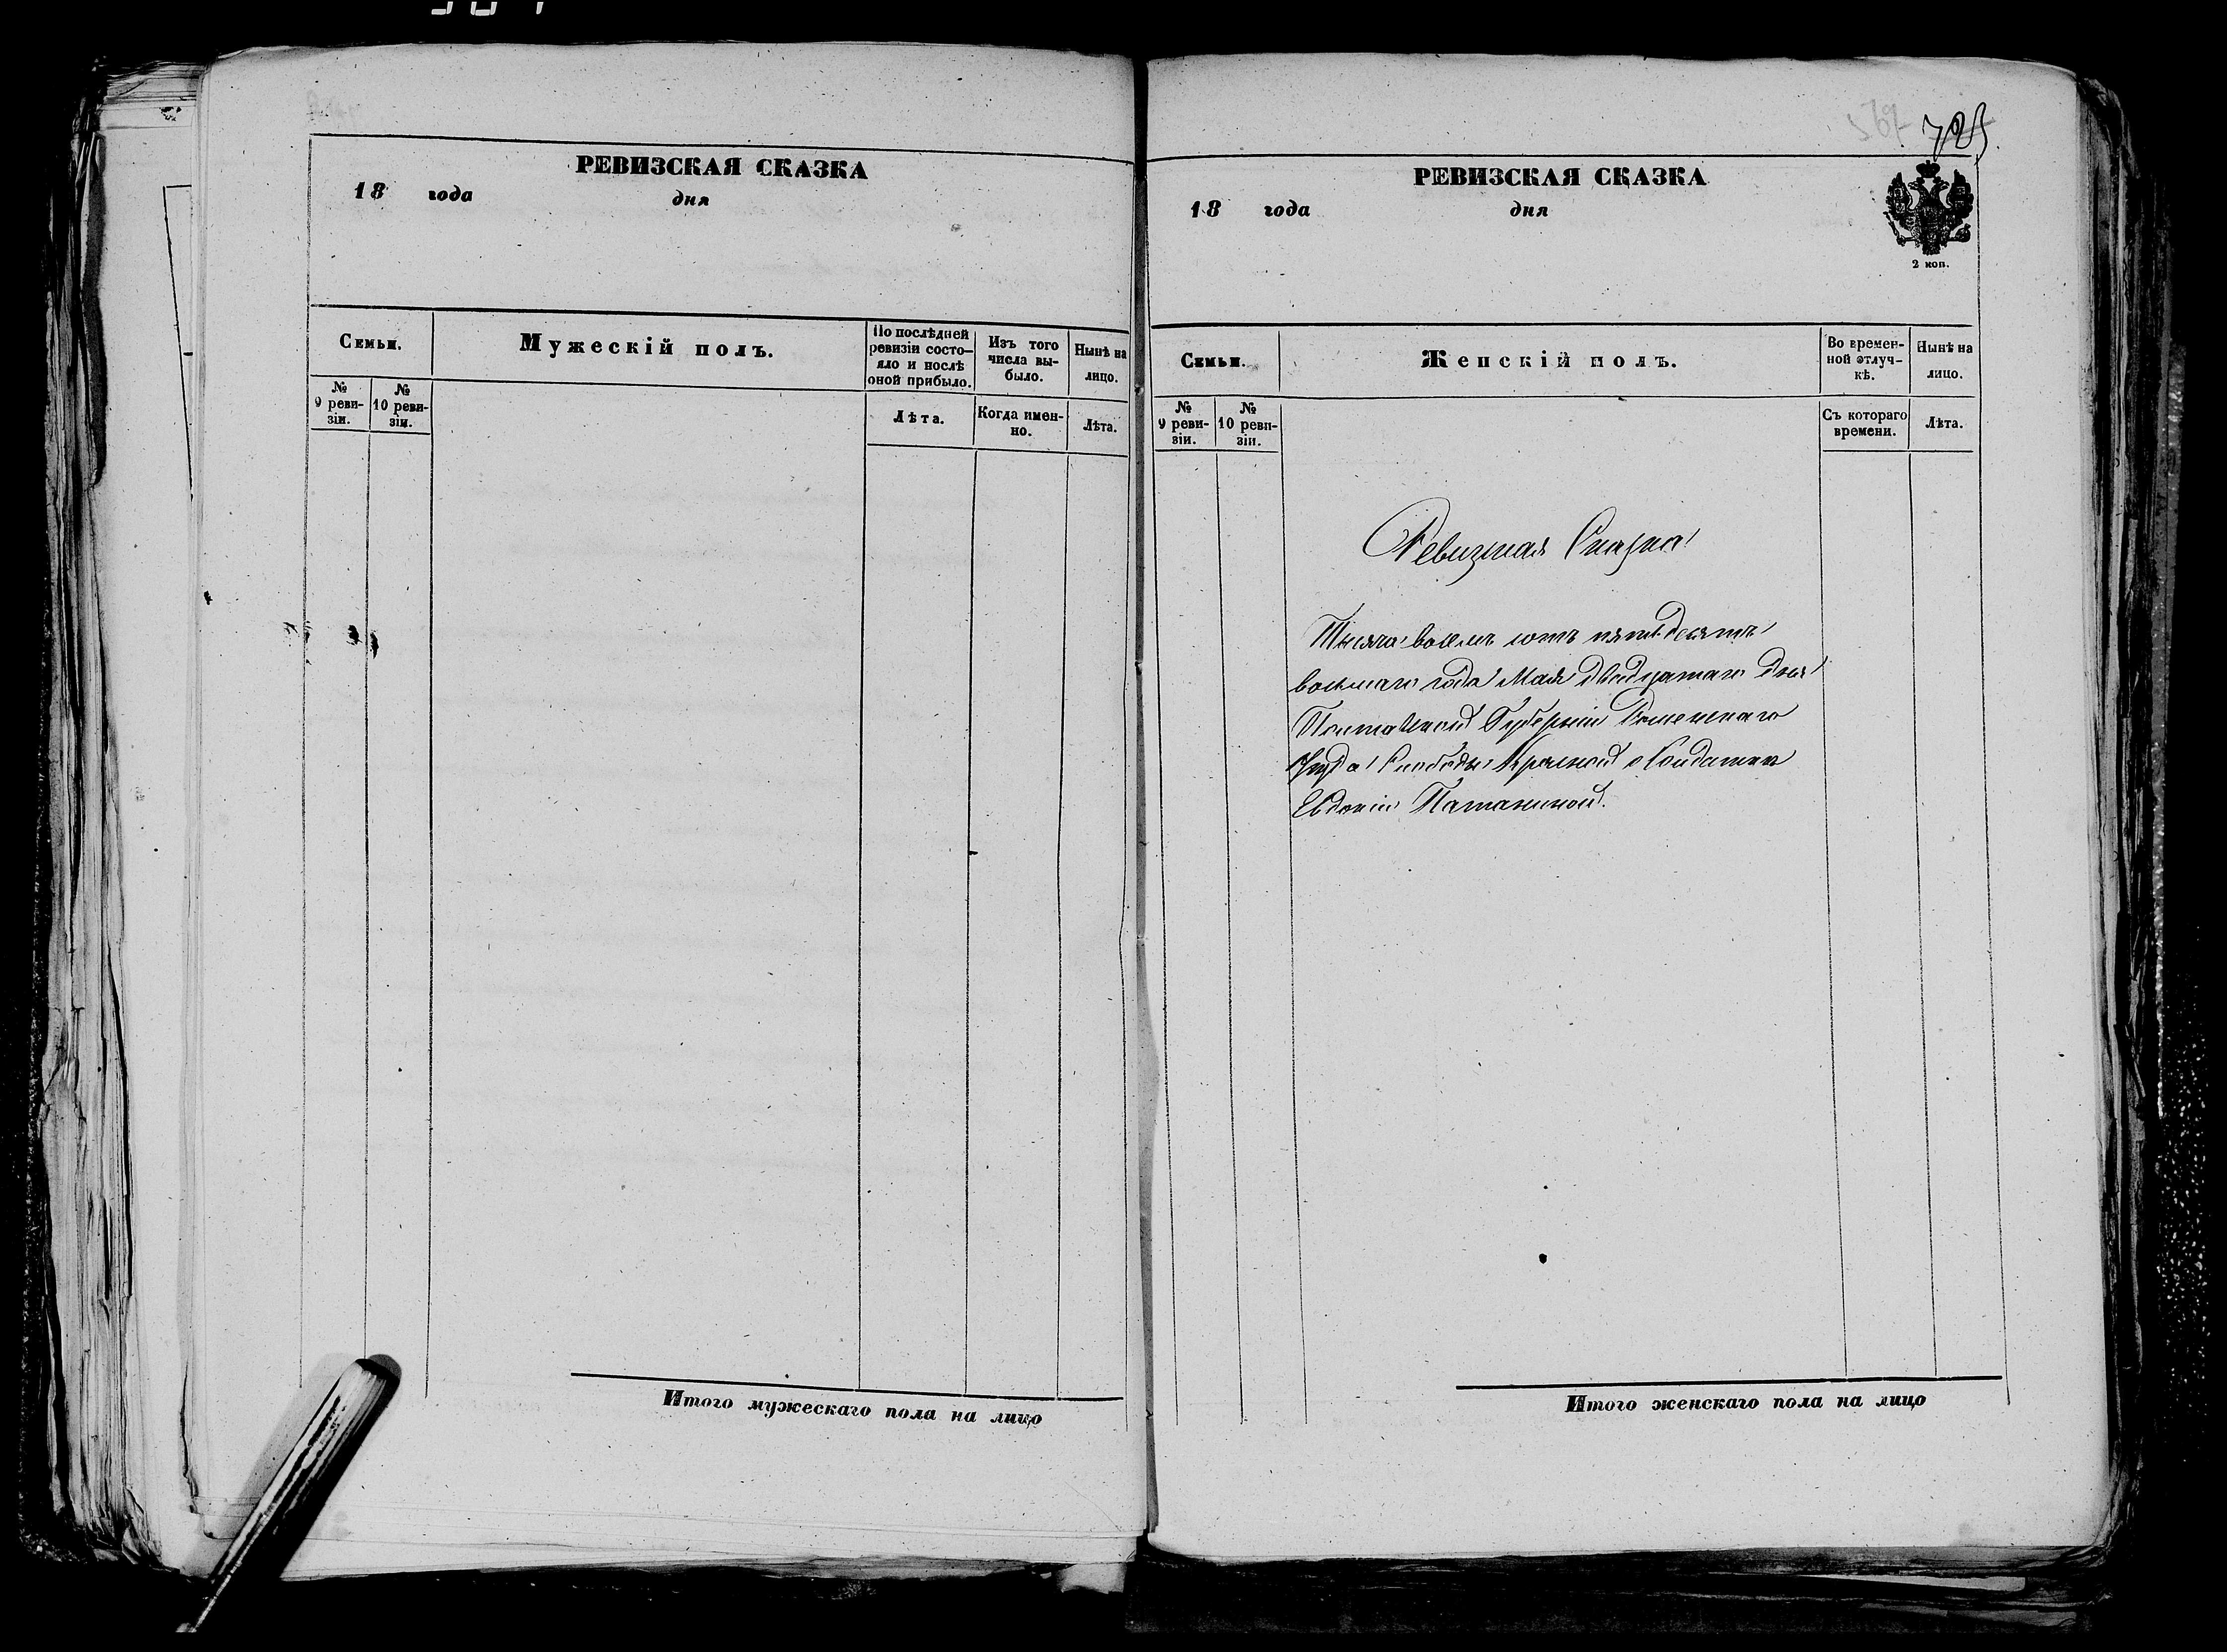 РЕВИЗСКАЯ СКАЗКА
18 года дня
Семьи.
Мужескій полъ.
По послѣдней ревизіи состо—яло и послѣ оной прибыло.
Изъ того числа вы-было.
Нынѣ на лицо.
№ 9 реви-зіи.
№ 10 реви-зіи.
Лѣта.
Когда имен-но.
Лѣта.
Итого мужескаго пола на лицо
725
РЕВИЗСКАЯ СКАЗКА
18 года дня
2 коп.
Семьи.
Женскій полъ.
Во времен-ной отлуч-кѣ.
Нынѣ на лицо.
№ 9 реви-зіи.
№ 10 реви-зіи.
Съ котораго времени.
Лѣта.
Ревизкая Сказка
Тысяча восемь сотъ пятьдесятъ
восьмаго года Мая двадцатаго дня
Полтавской Губерніи Роменскаго
Уезда Слободы Красной о Солдатке
Евдокіи
Итого женскаго пола на лицо